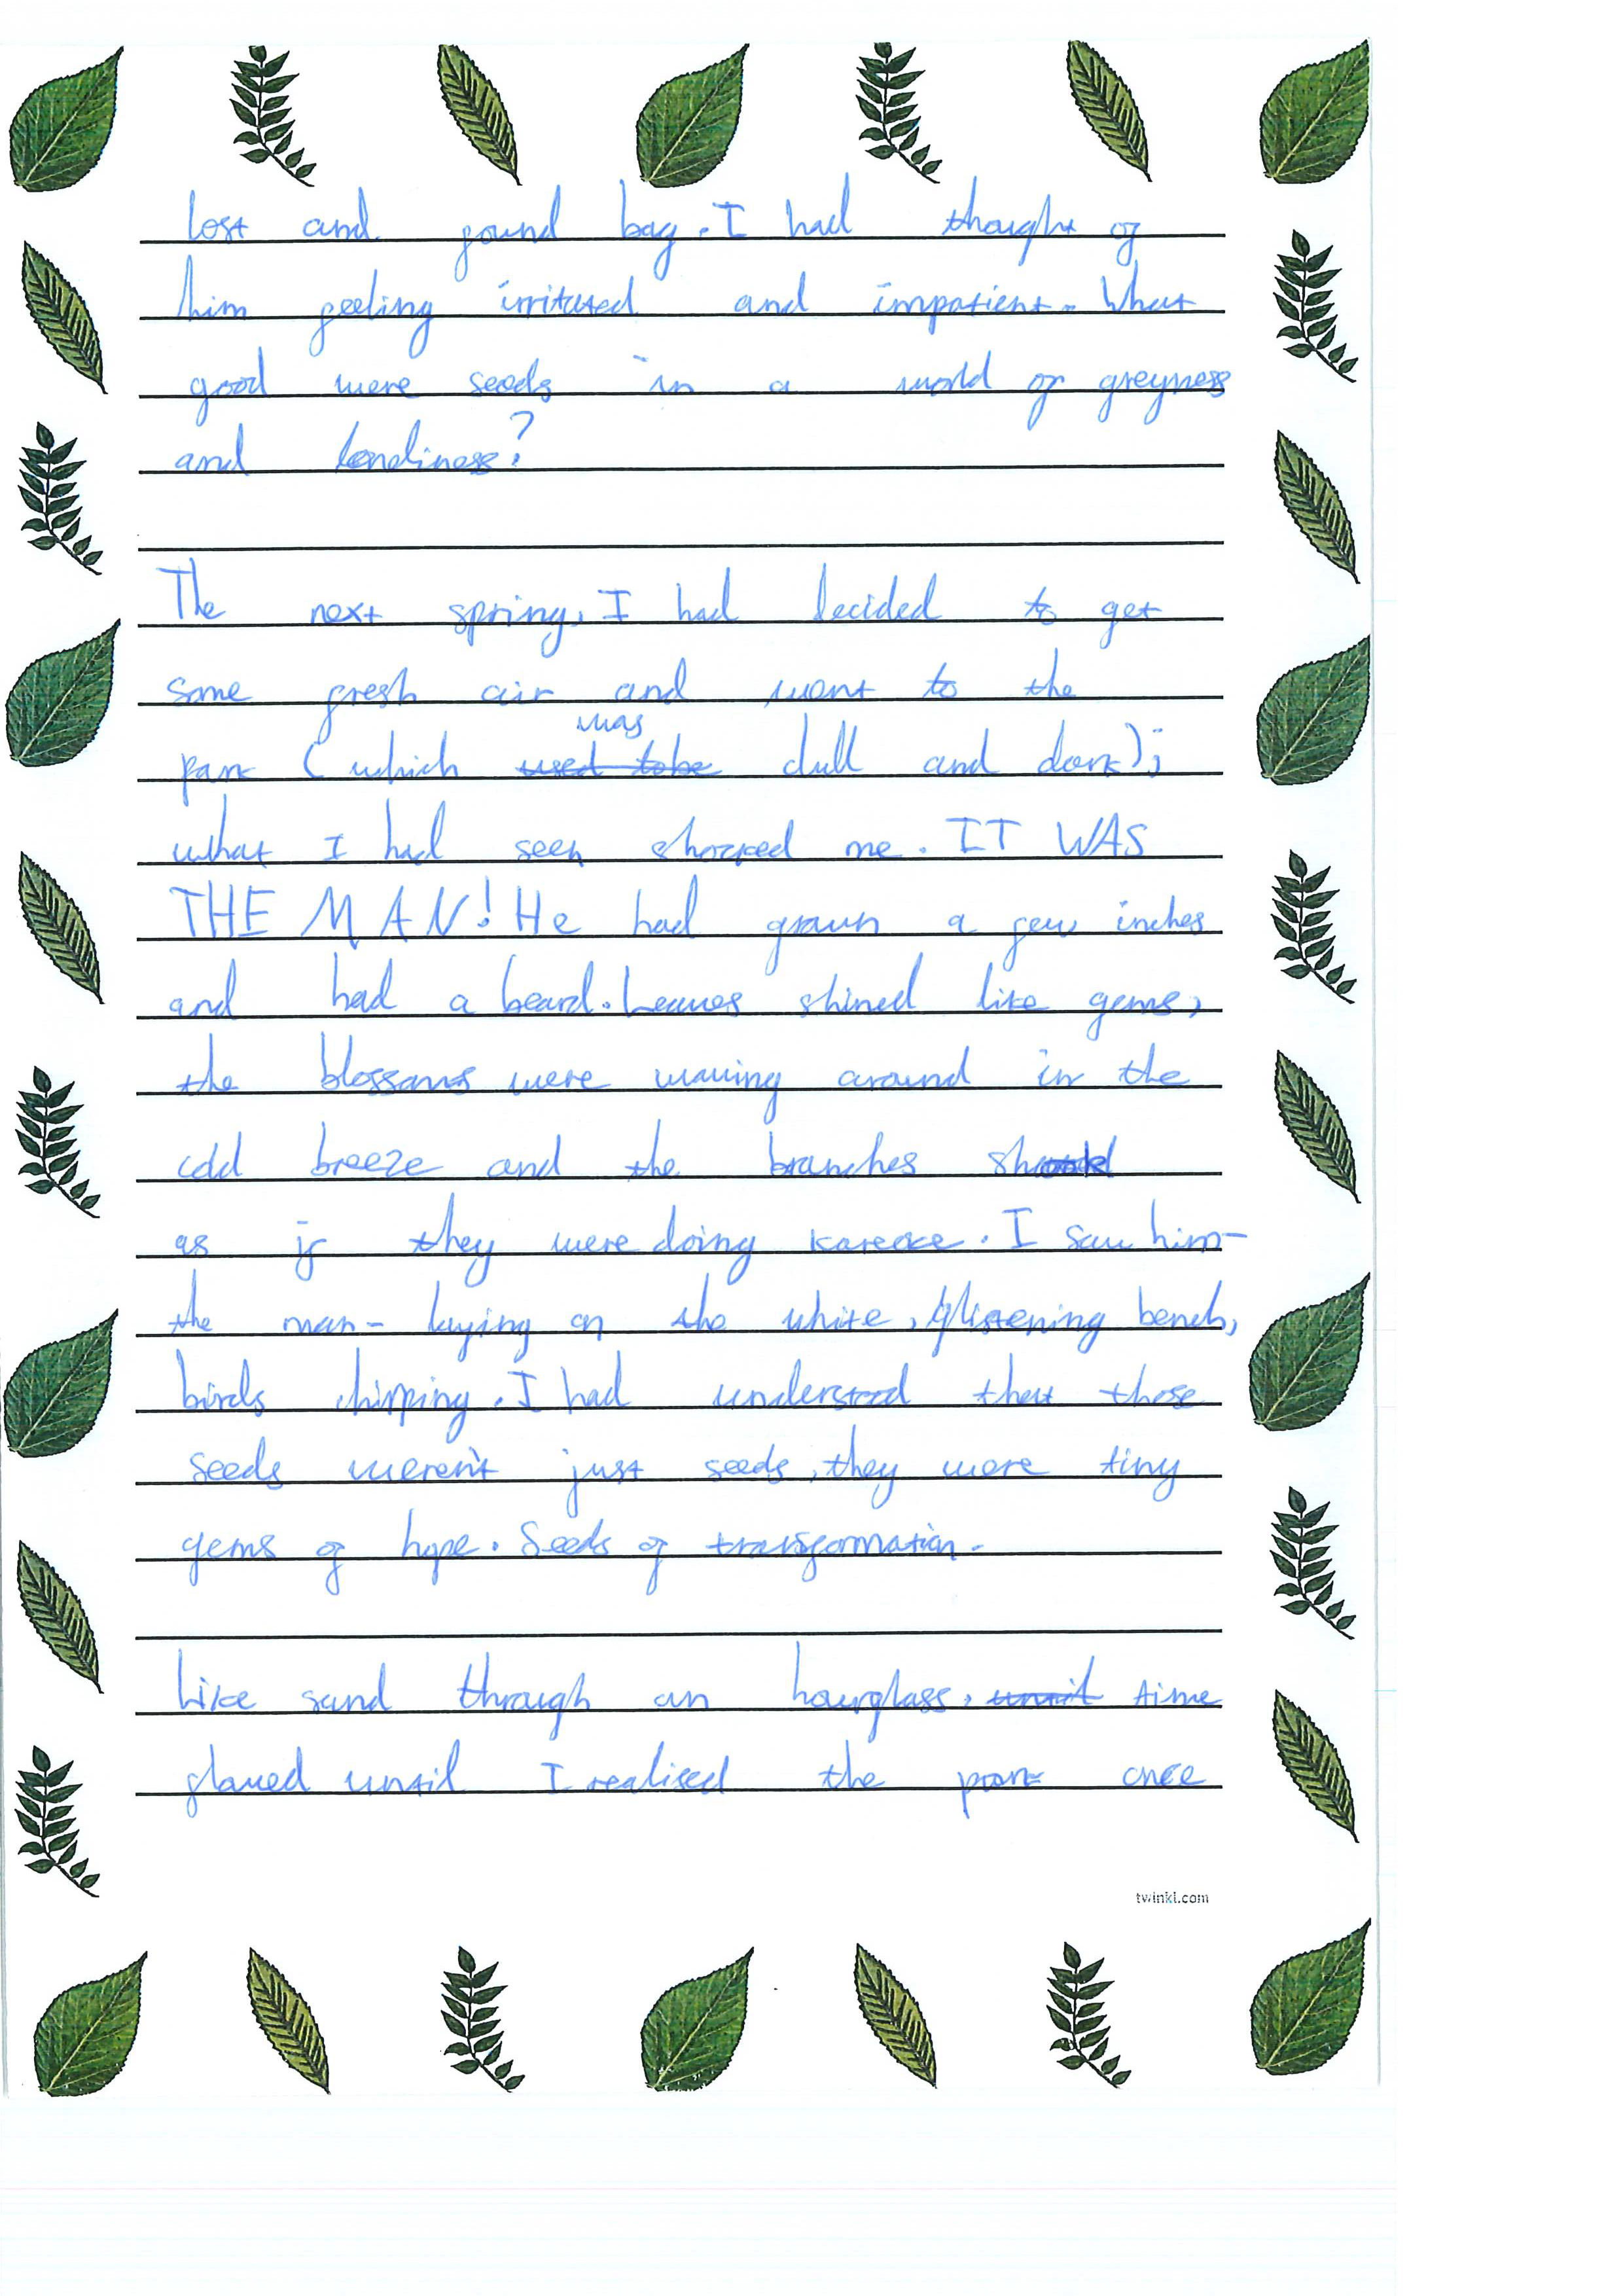 lost and found bag. I had thought of
him feeling irritated and impatient. What
good were seeds in a world of greyness
and loneliness?
The next spring, I had decided to get
some fresh air and went to the
was
park (which used to be dull and dark);
what I had seen shocked me. IT WAS
THE MAN! He had grown a few inches
and had a beard. Leaves shined like gems,
the blossoms were waving around in the
cold breeze and the branches
as if they were doing kareoke. I saw him-
the man- laying on the white, glistening bench,
birds chirping. I had understood that those
seeds weren't just seeds, they were tiny
gems of hope. Seeds of transformation.
Like sand through an hourglass, until time
flowed until I realised the park once
twinkl.com